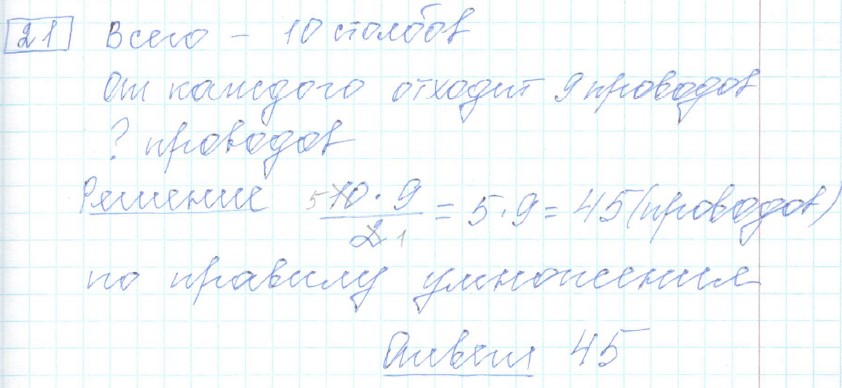 21 Всего – 10 столбов
От каждого отходит 9 проводов
? проводов
Решение 5 10 · 9 / 2 1 = 5 · 9 = 45 (проводов)
по правилу умножения
Ответ 45